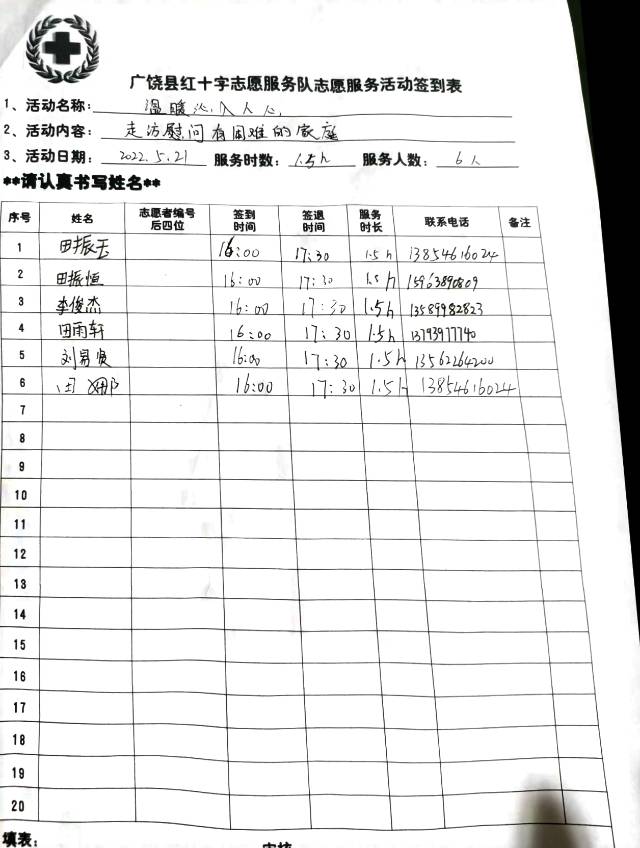 广饶县红十字志愿服务队志愿服务活动签到表
1、活动名称：温暖沁入人心，
2、活动内容：走访慰问有困难的家庭
3、活动日期：2022.5.21 服务时数：1.5h 服务人数：6人
**请认真书写姓名**
序号 姓名 志愿者编号后四位 签到时间 签退时间 服务时长 联系电话 备注
1 田振玉 16:00 17:30 1.5h 13854616024
2 田振恒 16:00 17:30 1.5h 15963890809
3 李俊杰 16:00 17:30 1.5h 13589982823
4 田雨轩 16:00 17:30 1.5h 13793977740
5 刘易贤 16:00 17:30 1.5h 13562264200
6 田 16:00 17:30 1.5h 13854616024
7
8
9
10
11
12
13
14
15
16
17
18
19
20
填表：